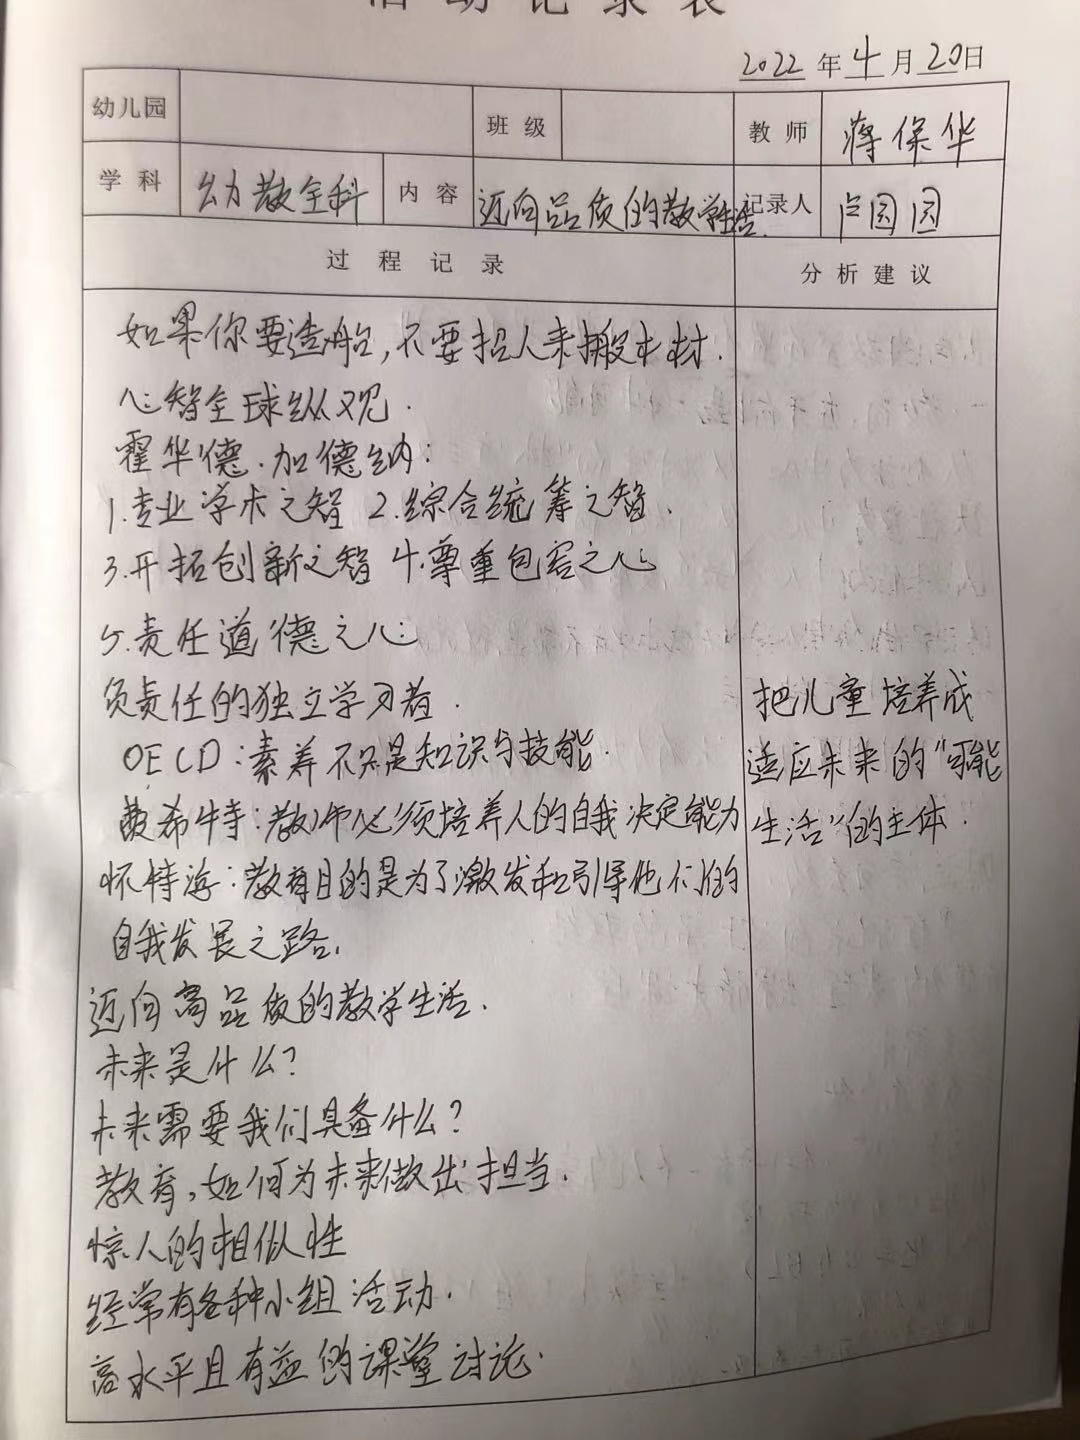 活动记录表
2022年4月20日
幼儿园 班级 教师 蒋保华
学科 幼教全科 内容 迈向品质的教学生活. 记录人 卢园园
过程记录 分析建议
如果你要造船,不要招人来搬木材.
心智全球纵观.
霍华德.加德纳:
1.专业学术之智 2.综合统筹之智.
3.开拓创新之智 4.尊重包容之心
5.责任道德之心
负责任的独立学习者.
OECD:素养不只是知识与技能.
费希特:教师必须培养人的自我决定能力
怀特海:教育目的是为了激发和引导他们的
自我发展之路.
迈向高品质的教学生活.
未来是什么?
未来需要我们具备什么?
教育,如何为未来做出担当.
惊人的相似性
经常有各种小组活动.
高水平且有益的课堂讨论.
把儿童培养成
适应未来的“可能
生活”的主体.